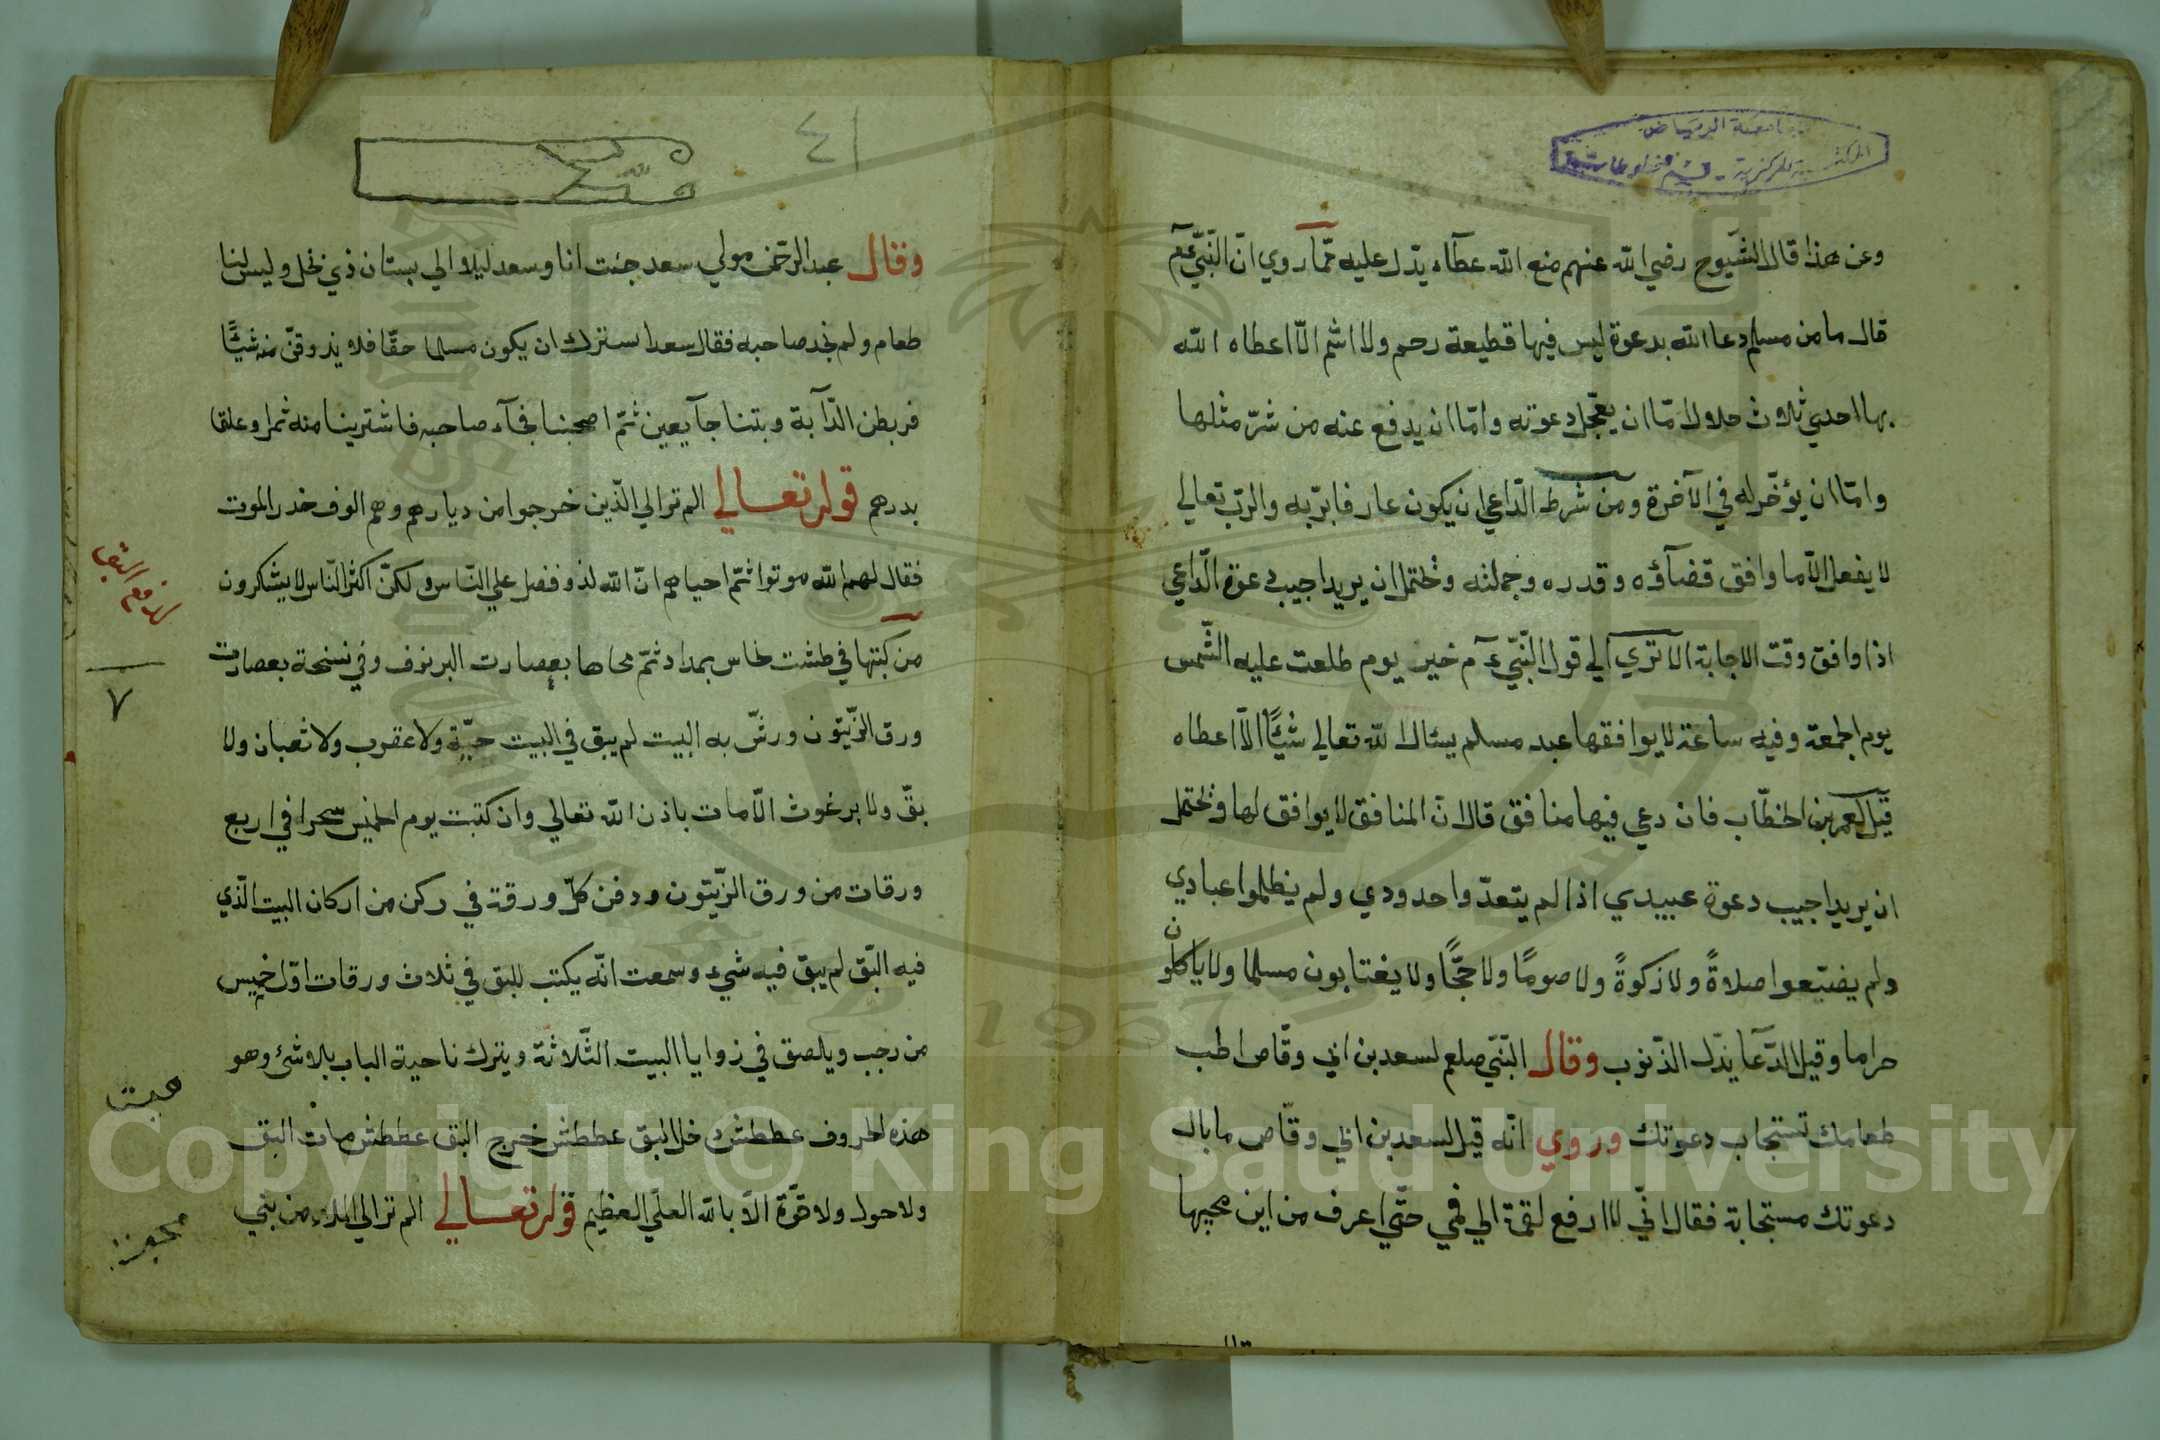 جامعة الرياض
المكتبة المركزية - قسم المخطوطات
وعن هذا قال الشيوح رضي الله عنهم منع الله عطآء يدّل عليه ممّا روي انّ النّبّي عم
قال ما من مسلم دعا الله بدعوة ليس فيها قطيعة رحم ولا اثم الّا اعطاه الله
بها احدي ثلاث خلال امّا ان يعجّل دعوته وامّا ان يدفع عنه من شرّ مثلها
وامّا ان يؤخّر له في الآخرة ومن شرط الدّاعي ان يكون عارفا بربّه والرّب تعالي
لا يفعل الّا ما وافق قضآؤه وقدره وجملته وتحتمل ان يريد اجيب دعوة الدّاعي
اذا وافق وقت الاجابة الا تري الي قول النّبيّ عم خير يوم طلعت عليه الشّمس
يوم الجمعة وفيه ساعة لا يوافقها عبد مسلم يسئال الله تعالي شيئًا الّا اعطاه
قيل لعمر بن الخطّاب فان دعي فيها منافق قال انّ المنافق لا يوافق لها وتحتمل
ان يريد اجيب دعوة عبيدي اذا لم يتعدّوا حدودي ولم يظلموا عبادي
ولم يضيّعوا صلاةً ولا زكوةً ولا صومًا ولا حجًّا ولا يغتابون مسلما ولا ياكلون
حراما وقيل الدّعا يدّل الذّنوب وقال النّبّي صلعم لسعد بن ابي وقّاص اطب
طعامك تستجاب دعوتك وروي انّه قيل لسعد بن ابي وقّاص ما بال
دعوتك مستجابة فقال انّي لا ارفع لقمة الي فمي حتّي اعرف من اين مجيها
٤١
وقال عبد الرّحمن مولي سعد جئت انا وسعد ليلا الي بستان ذي نخل وليس لنا
طعام ولم نجد صاحبه فقال سعد استرك ان يكون مسلما حقّا فلا يذوقنّ منه شيئًا
فربطن الدّآبة وبتنا جآيعين ثمّ اصبحنا فجآء صاحبه فاشترينا منه تمرا وعلفا
بدرهم قوله تعالي الم تر الي الّذين خرجوا من ديارهم وهم الوف حذر الموت
فقال لهم الله موتوا ثمّ احياهم انّ الله لذو فضل علي النّاس ولكنّ اكثر النّاس لا يشكرون
من كتبها في طشت نحاس بمداد ثمّ محاها بعصارت البرنوف وفي نسخة بعصارت
ورق الزّيتون ورشّ به البيت لم يبق في البيت حيّة ولا عقرب ولا ثعبان ولا
بقّ ولا برغوث الّا مات باذن الله تعالي وان كتبت يوم الخميس سحرا في اربع
ورقات من ورق الزّيتون ودفن كلّ ورقة في ركن من اركان البيت الّذي
فيه البّق لم يبّق فيه شيء وسمعت انّه يكتب للبق في ثلاث ورقات اوّل خميس
من رجب ويلصق في زوايا البيت الثّلاثة ويترك ناحية الباب بلا شئ وهو
هذه الحروف عططش دخل البق عططش خرج البق عططش مات البق
ولا حول ولا قوّة الّا بالله العلّي العظيم قوله تعالي الم تر الي الملاء من بني
٧
Copyright © King Saud University
1957